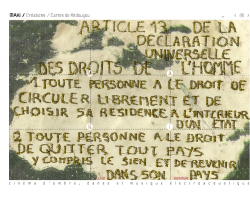 ARTICLE 13 DE LA
DECLARATION
UNIVERSELLE
DES DROITS DE L'HOMME
1 TOUTE PERSONNE A LE DROIT DE
CIRCULER LIBREMENT ET DE
CHOISIR SA RESIDENCE A L'INTERIEUR
D'UN ETAT
2 TOUTE PERSONNE A LE DROIT
DE QUITTER TOUT PAYS
Y COMPRIS LE SIEN ET DE REVENIR
DANS SON PAYS
cinéma d'ombre, danse et musique électroacoustique